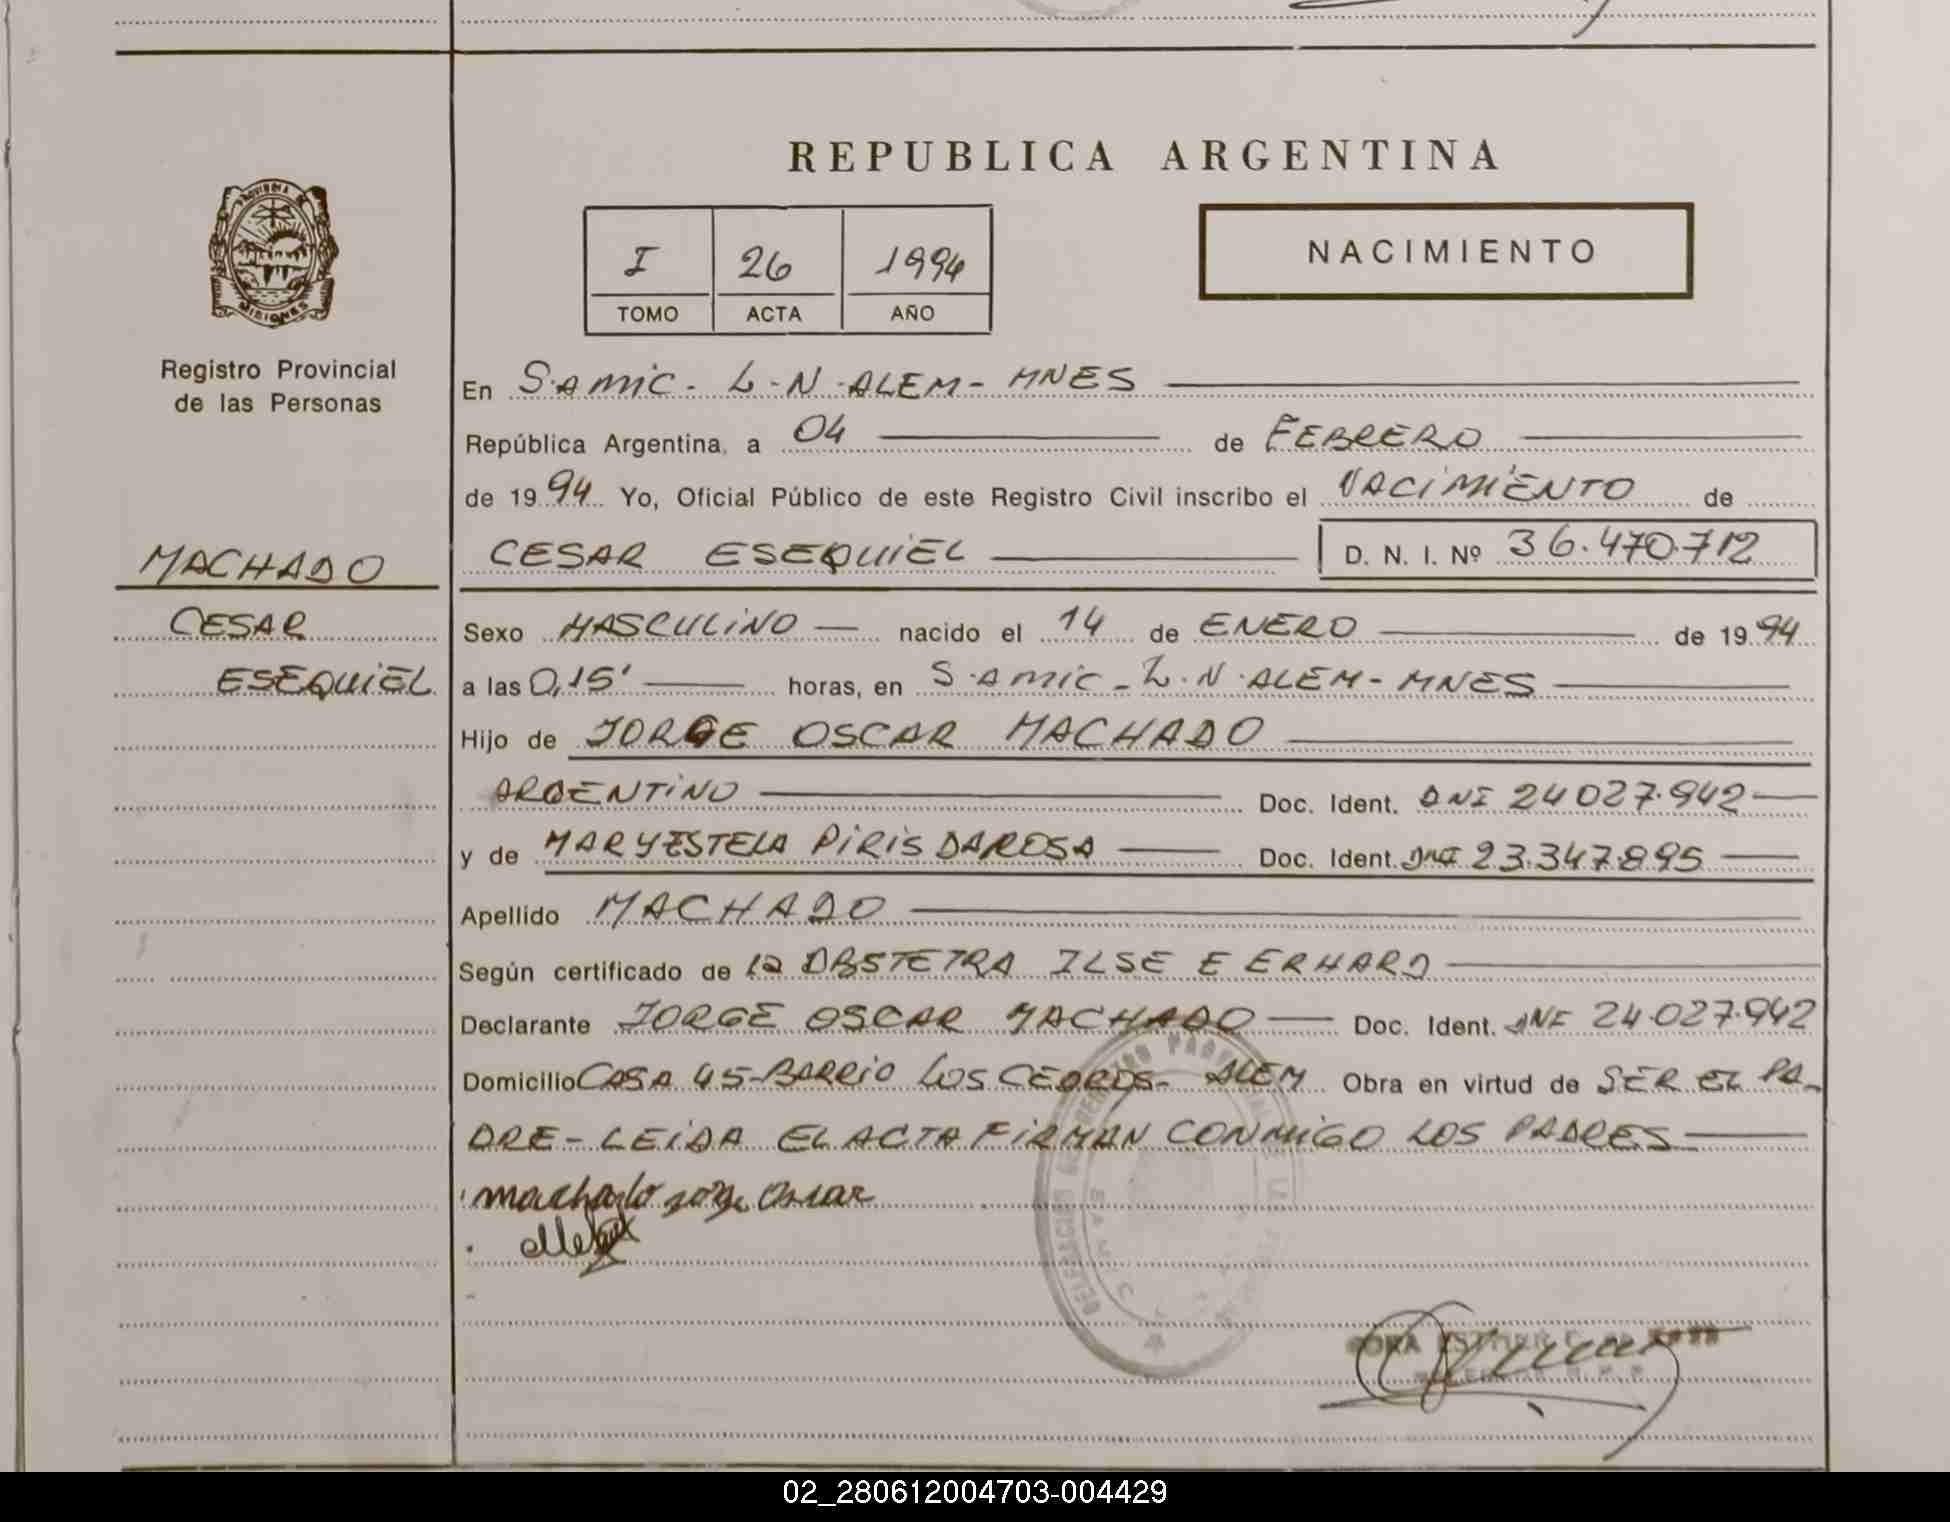 REPUBLICA ARGENTINA
PROVINCIA DE
MISIONES
Registro Provincial
de las Personas
I 26 1994
TOMO ACTA AÑO
NACIMIENTO
En S.AMIC- L-N-ALEM- MNES
República Argentina, a 04 de FEBRERO
de 1994 Yo, Oficial Público de este Registro Civil inscribo el NACIMIENTO de
MACHADO
CESAR ESEQUIEL D. N. I. Nº 36.470.712
CESAR
Sexo MASCULINO nacido el 14 de ENERO de 1994
ESEQUIEL
a las 0,15' horas, en S.AMIC-L.N.ALEM-MNES
Hijo de JORGE OSCAR MACHADO
ARGENTINO Doc. Ident. DNI 24027.942
y de MARYESTELA PIRIS DAROSA Doc. Ident. DNI 23.347.895
Apellido MACHADO
Según certificado de la OBSTETRA ILSE E ERHARD
Declarante JORGE OSCAR MACHADO Doc. Ident. DNI 24.027.942
Domicilio CASA 45-BARRIO LOS CEDROS- ALEM Obra en virtud de SER EL PA-
DRE- LEIDA EL ACTA FIRMAN CONMIGO LOS PADRES
machado jorge Oscar
02_280612004703-004429